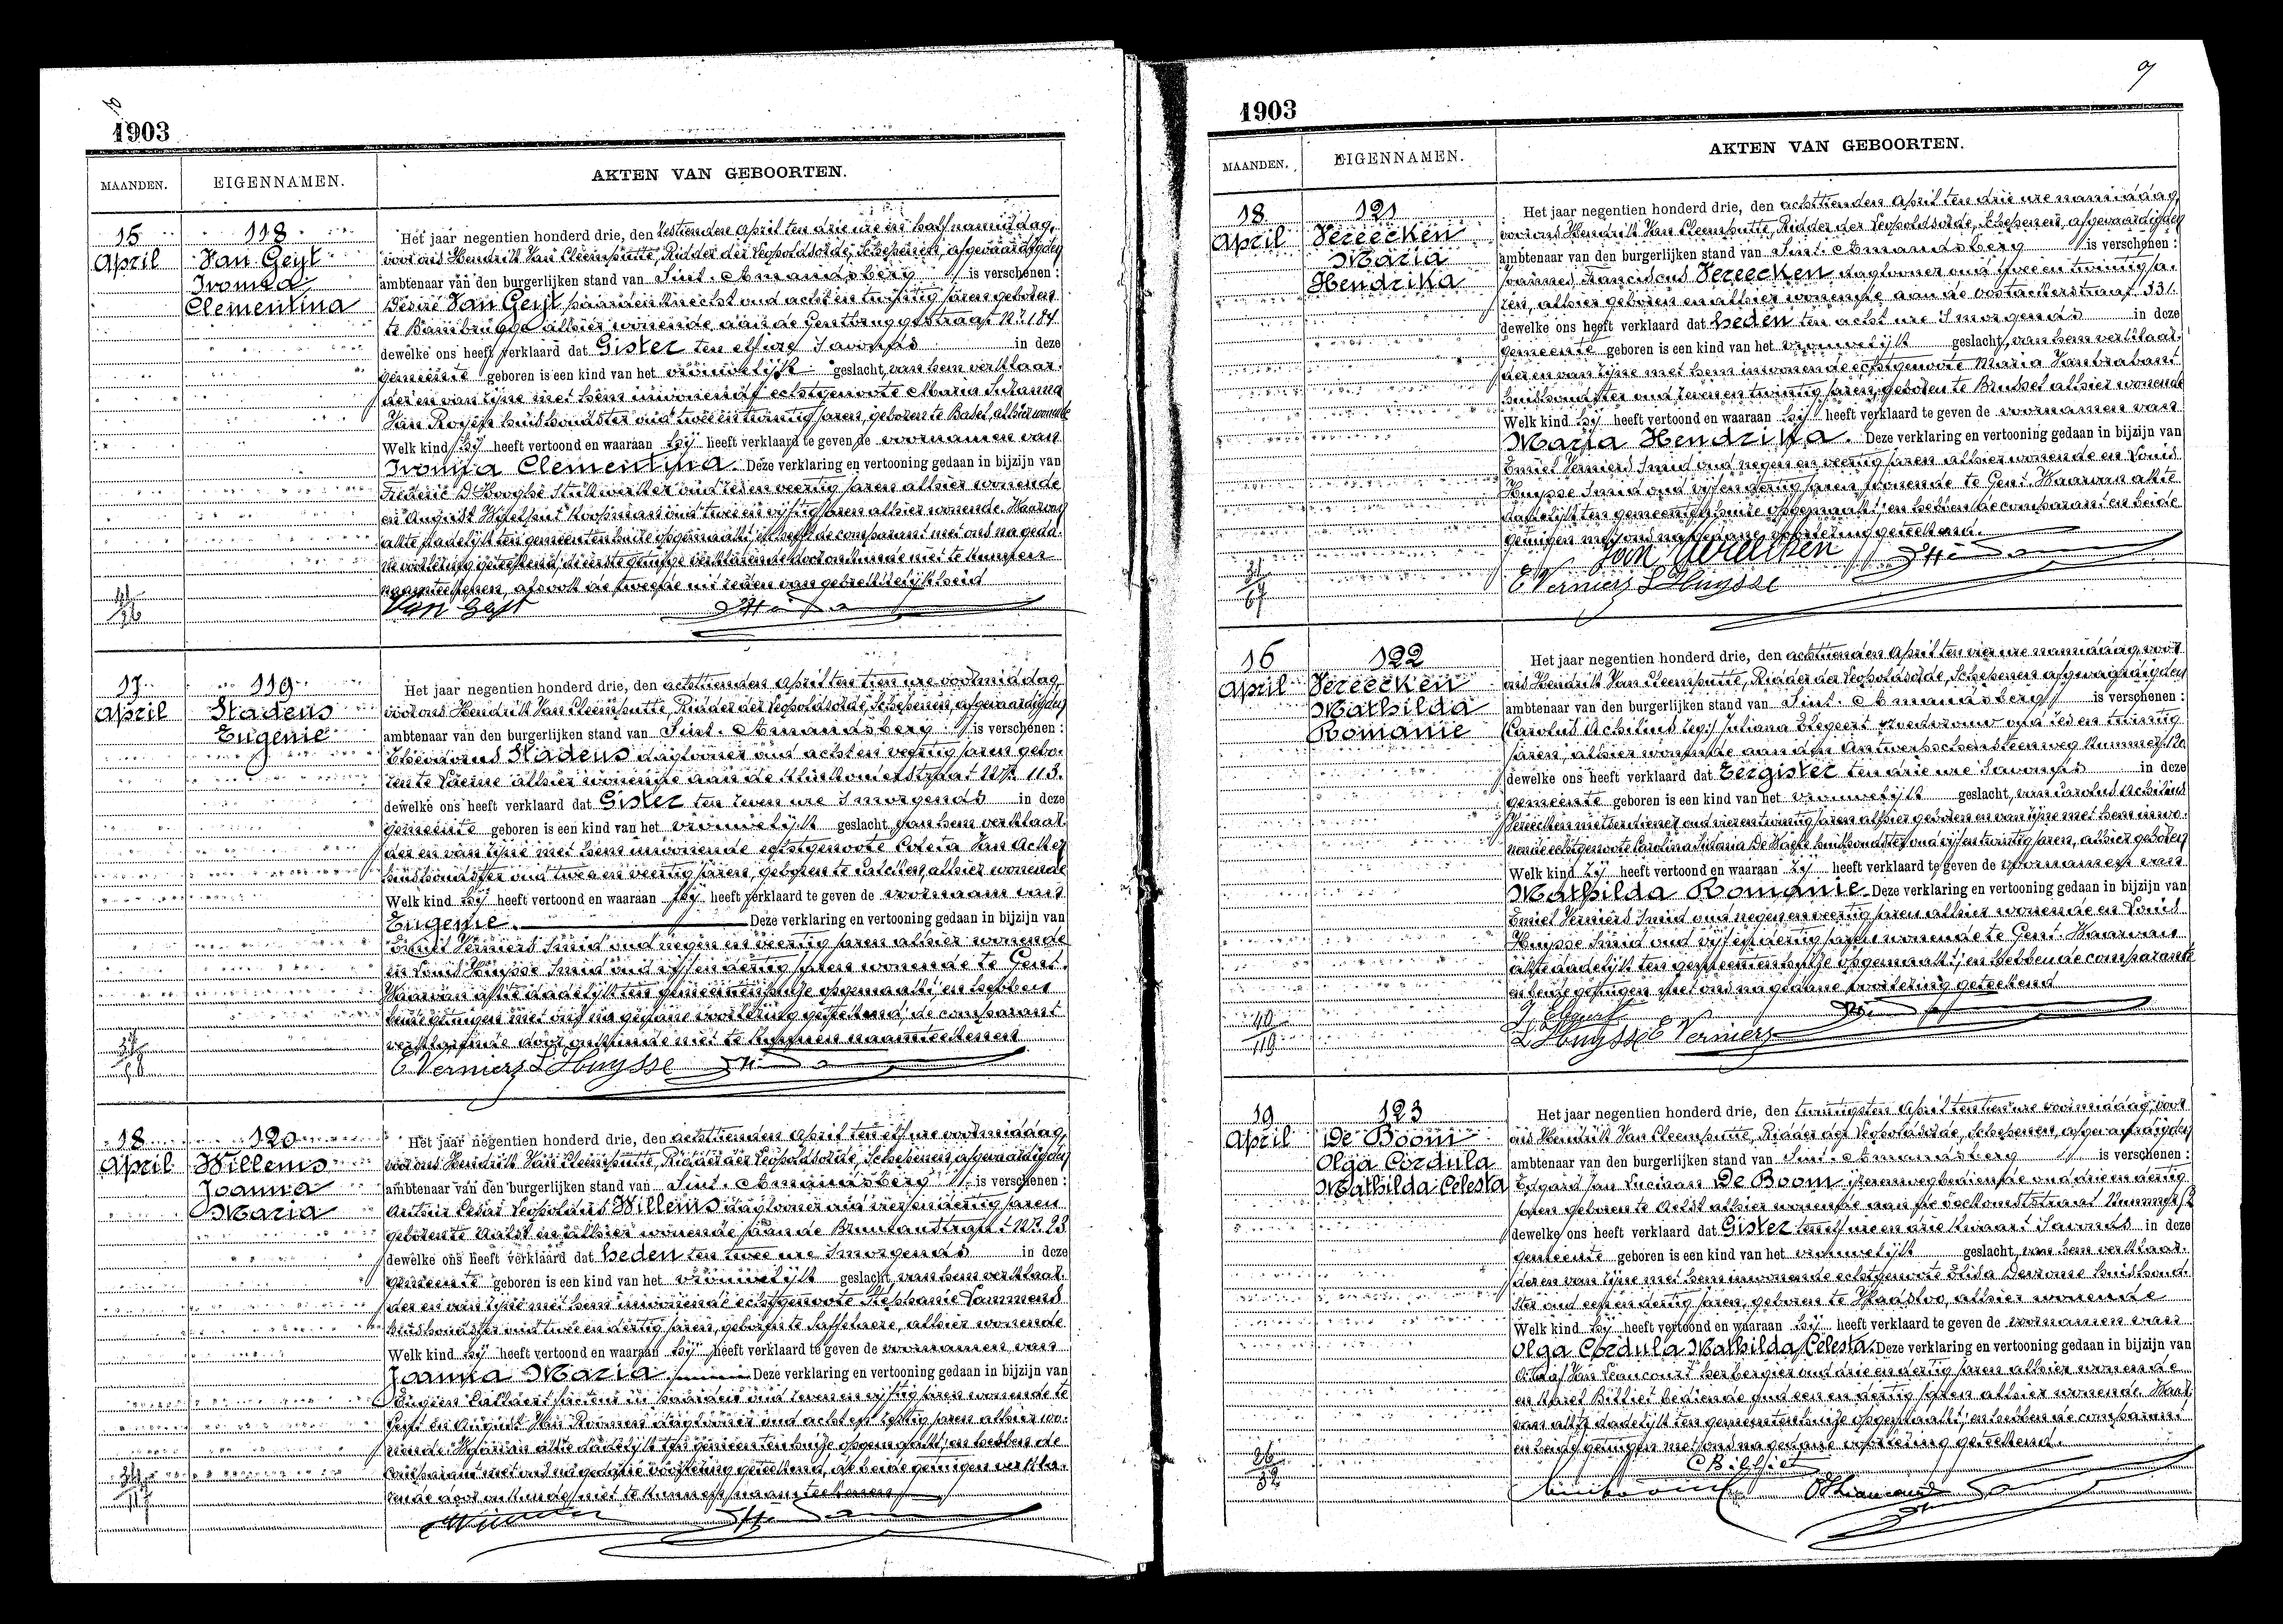 1903
MAANDEN.
EIGENNAMEN.
AKTEN VAN GEBOORTEN.
15
April
118
Van Geyt
Iromia
Clementina
Het jaar negentien honderd drie, den zestienden April ten drie ure en half namiddag,
voor ons Hendrik Van Cleemputte, Ridder der Leopoldsorde, Schepenen, afgevaardigden
ambtenaar van den burgerlijken stand van Sint. Amandsberg is verschenen :
Désiré Van Geyt paardenknecht oud acht en twintig jaren geboren
te Bambrugge alhier wonende aan de Gentbruggestraat Nr. 184
dewelke ons heeft verklaard dat Gister ten elf ure 's avonds in deze
gemeente geboren is een kind van het vrouwelijk geslacht, van hem verklaar-
der en van zijne met hem inwonende echtgenoote Maria Susanna
Van Royen huishoudster oud twee en twintig jaren, geboren te Basel, alhier wonende
Welk kind hij heeft vertoond en waaraan hij heeft verklaard te geven de voornamen van
Iromia Clementina. Deze verklaring en vertooning gedaan in bijzijn van
Frederic D'Hooghe stukwerker oud zeven veertig jaren alhier wonende
en August koopman oud twee en vijftig jaren alhier wonende. Waarvan
akte dadelijk ten gemeentenhuize opgemaakt, en heeft de comparant met ons na geda-
ne voorlezing geteekend, de eerste getuige verklarende door onkunde niet te kunnen
naamteekenen, alsook de tweede uit reden van gebrekkelijkheid
Van Geyt
17
April
119
Stadeus
Eugenie
Het jaar negentien honderd drie, den achttienden April ten tien ure voormiddag,
voor ons Hendrik Van Cleemputte, Ridder der Leopoldsorde, Schepenen, afgevaardigden
ambtenaar van den burgerlijken stand van Sint. Amandsberg is verschenen :
Stadeus daglooner oud acht en veertig jaren gebo-
ren te Laerne alhier wonende aan de Klinkouterstraat Nr. 113.
dewelke ons heeft verklaard dat Gister ten zeven ure 's morgends in deze
gemeente geboren is een kind van het vrouwelijk geslacht, van hem verklaar-
der en van zijne met hem inwonende echtgenoote Coleta Van Acker
huishoudster oud twee en veertig jaren, geboren te Calcken, alhier wonende
Welk kind hij heeft vertoond en waaraan hij heeft verklaard te geven de voornaam van
Eugenie. Deze verklaring en vertooning gedaan in bijzijn van
Emiel Verniers Smid oud negen en veertig jaren alhier wonende
en Louis Huysse Smid oud vijf en dertig jaren wonende te Gent.
Waarvan akte dadelijk ten gemeentenhuize opgemaakt, en hebben
beide getuigen met ons na gedane voorlezing geteekend de comparant
verklarende door onkunde niet te kunnen naamteekenen
E Verniers L Huysse
18
April
120
Willems
Joanna
Maria
Het jaar negentien honderd drie, den achttienden April ten elf ure voormiddag,
voor ons Hendrik Van Cleemputte, Ridder der Leopoldsorde, Schepenen, afgevaardigden
ambtenaar van den burgerlijken stand van Sint. Amandsberg is verschenen :
Arthur Cesar Leopoldus Willems daglooner oud vier en dertig jaren
geboren te Aalst en alhier wonende aan de Nr. 23
dewelke ons heeft verklaard dat heden ten twee ure 's morgends in deze
gemeente geboren is een kind van het vrouwelijk geslacht, van hem verklaar-
der en van zijne met hem inwonende echtgenoote Stephanie Lammens
huishoudster oud twee en dertig jaren, geboren te Saffelaere, alhier wonende
Welk kind hij heeft vertoond en waaraan hij heeft verklaard te geven de voornamen van
Joanna Maria. Deze verklaring en vertooning gedaan in bijzijn van
Eugeen facteur in paarden oud zeven en vijftig jaren wonende te
Gent en August Van Roomen dagloner oud acht en zestig jaren alhier wo-
nende. Waarvan akte dadelijk ten gemeentenhuize opgemaakt, en hebben de
comparant met ons na gedane voorlezing geteekend, de beide getuigen verkla-
rende door onkunde niet te kunnen naamteekenen
1903
9
MAANDEN.
EIGENNAMEN.
AKTEN VAN GEBOORTEN.
18
April
121
Vereecken
Maria
Hendrika
Het jaar negentien honderd drie, den achttienden April ten drie ure namiddag,
voor ons Hendrik Van Cleemputte, Ridder der Leopoldsorde, Schepenen, afgevaardigden
ambtenaar van den burgerlijken stand van Sint. Amandsberg is verschenen :
Joannes Franciscus Vereecken dagloner oud twee en twintig ja-
ren, alhier geboren en alhier wonende aan de Oostackerstraat 331.
dewelke ons heeft verklaard dat heden ten acht ure 's morgends in deze
gemeente geboren is een kind van het vrouwelijk geslacht, van hem verklaar-
der en van zijne met hem inwonende echtgenoote Maria Vanbrabant
huishoudster oud zeven en twintig jaren, geboren te Brussel alhier wonende
Welk kind hij heeft vertoond en waaraan hij heeft verklaard te geven de voornamen van
Maria Hendrika. Deze verklaring en vertooning gedaan in bijzijn van
Emiel Verniers Smid oud negen en veertig jaren alhier wonende en Louis
Huysse Smid oud vijf en dertig jaren, wonende te Gent. Waarvan akte
dadelijk ten gemeentenhuize opgemaakt, en hebben de comparant en beide
getuigen met ons na gedane voorlezing geteekend.
Jan Vereecken
E Verniers L Huysse
16
April
122
Vereecken
Mathilda
Romanie
Het jaar negentien honderd drie, den achttienden April ten vier ure namiddag, voor
ons Hendrik Van Cleemputte, Ridder der Leopoldsorde, Schepenen afgevaardigden
ambtenaar van den burgerlijken stand van Sint. Amandsberg is verschenen :
Juliana Elegeert vroedvrouw oud zes en twintig
jaren, alhier wonende aan den Antwerpschensteenweg Nummer 120
dewelke ons heeft verklaard dat Eergister ten drie ure 's avonds in deze
gemeente geboren is een kind van het vrouwelijk geslacht, van Carolus Achilius
Vereecken metserdiener oud vier en twintig jaren alhier geboren en van zijne met hem inwo-
nende echtgenoote Carolina Silvana De Waele huishoudster oud vijf en twintig jaren, alhier geboren
Welk kind zij heeft vertoond en waaraan zij heeft verklaard te geven de voornamen van
Mathilda Romanie. Deze verklaring en vertooning gedaan in bijzijn van
Emiel Verniers Smid oud negen en veertig jaren alhier wonende en Louis
Huysse Smid oud vijf en dertig jaren wonende te Gent. Waarvan
akte dadelijk ten gemeentenhuize opgemaakt, en hebben de comparante
en beide getuigen met ons na gedane voorlezing geteekend
L Huysse E Verniers
19
April
123
De Boom
Olga Cordula
Mathilda Celesta
Het jaar negentien honderd drie, den twintigsten April ten tien ure voormiddag, voor
ons Hendrik Van Cleemputte, Ridder der Leopoldsorde, Schepenen, afgevaardigden
ambtenaar van den burgerlijken stand van Sint. Amandsberg is verschenen :
Edgard Jan Lucianus De Boom ijzerenwegbediende oud drie en dertig
jaren geboren te Aelst alhier wonende aan de Toekomststraat Nummer
dewelke ons heeft verklaard dat Gister ten elf ure en drie kwaart 's avonds in deze
gemeente geboren is een kind van het vrouwelijk geslacht, van hem verklaar-
der en van zijne met hem inwonende echtgenoote Elisa Devrome huishoud-
ster oud een en dertig jaren, geboren te Waasloo, alhier wonende
Welk kind hij heeft vertoond en waaraan hij heeft verklaard te geven de voornamen van
Olga Cordula Mathilda Celesta. Deze verklaring en vertooning gedaan in bijzijn van
Octaaf Van Leaucourt herbergier oud drie en dertig jaren alhier wonende
en Karel Billiet bediende oud een en dertig jaren alhier wonende. Waar-
van akte dadelijk ten gemeentenhuize opgemaakt, en hebben de comparant
en beide getuigen met ons na gedane voorlezing geteekend.
C Billiet